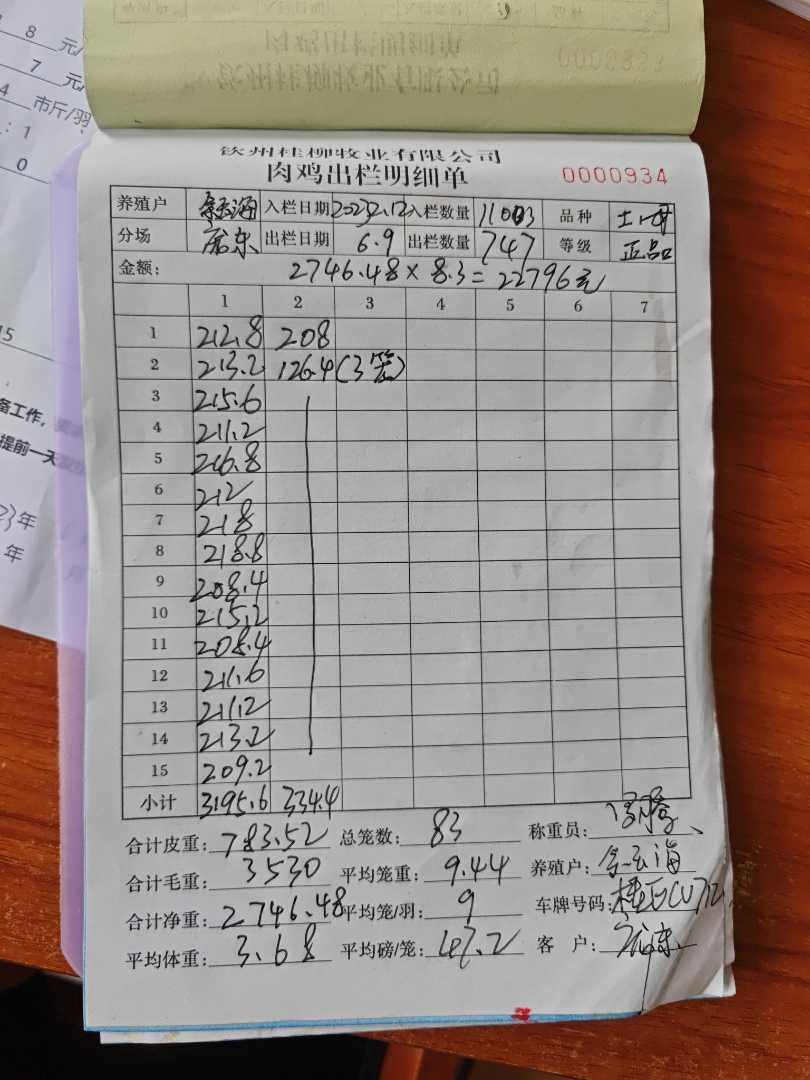 8 元/
7 元/
4 市斤/羽
: 1
0
15
备工作,
提前一天
23年
年
0000934
钦州桂柳牧业有限公司
肉鸡出栏明细单
养殖户 入栏日期 入栏数量 品种
分场 出栏日期 6.9 出栏数量 747 等级 正品
金额: 2746.48 × 8.3 = 22796元
1 2 3 4 5 6 7
1 212.8 208
2 213.2 126.4(3笼)
3 215.6
4 211.2
5 216.8
6 212
7 218
8 218.8
9 208.4
10 215.2
11 208.4
12 211.6
13 211.2
14 213.2
15 209.2
小计 3195.6 334.4
合计皮重: 783.52 总笼数: 83 称重员:
合计毛重: 3530 平均笼重: 9.44 养殖户:
合计净重: 2746.48 平均笼/羽: 9 车牌号码:
平均体重: 3.68 平均磅/笼: 客 户: